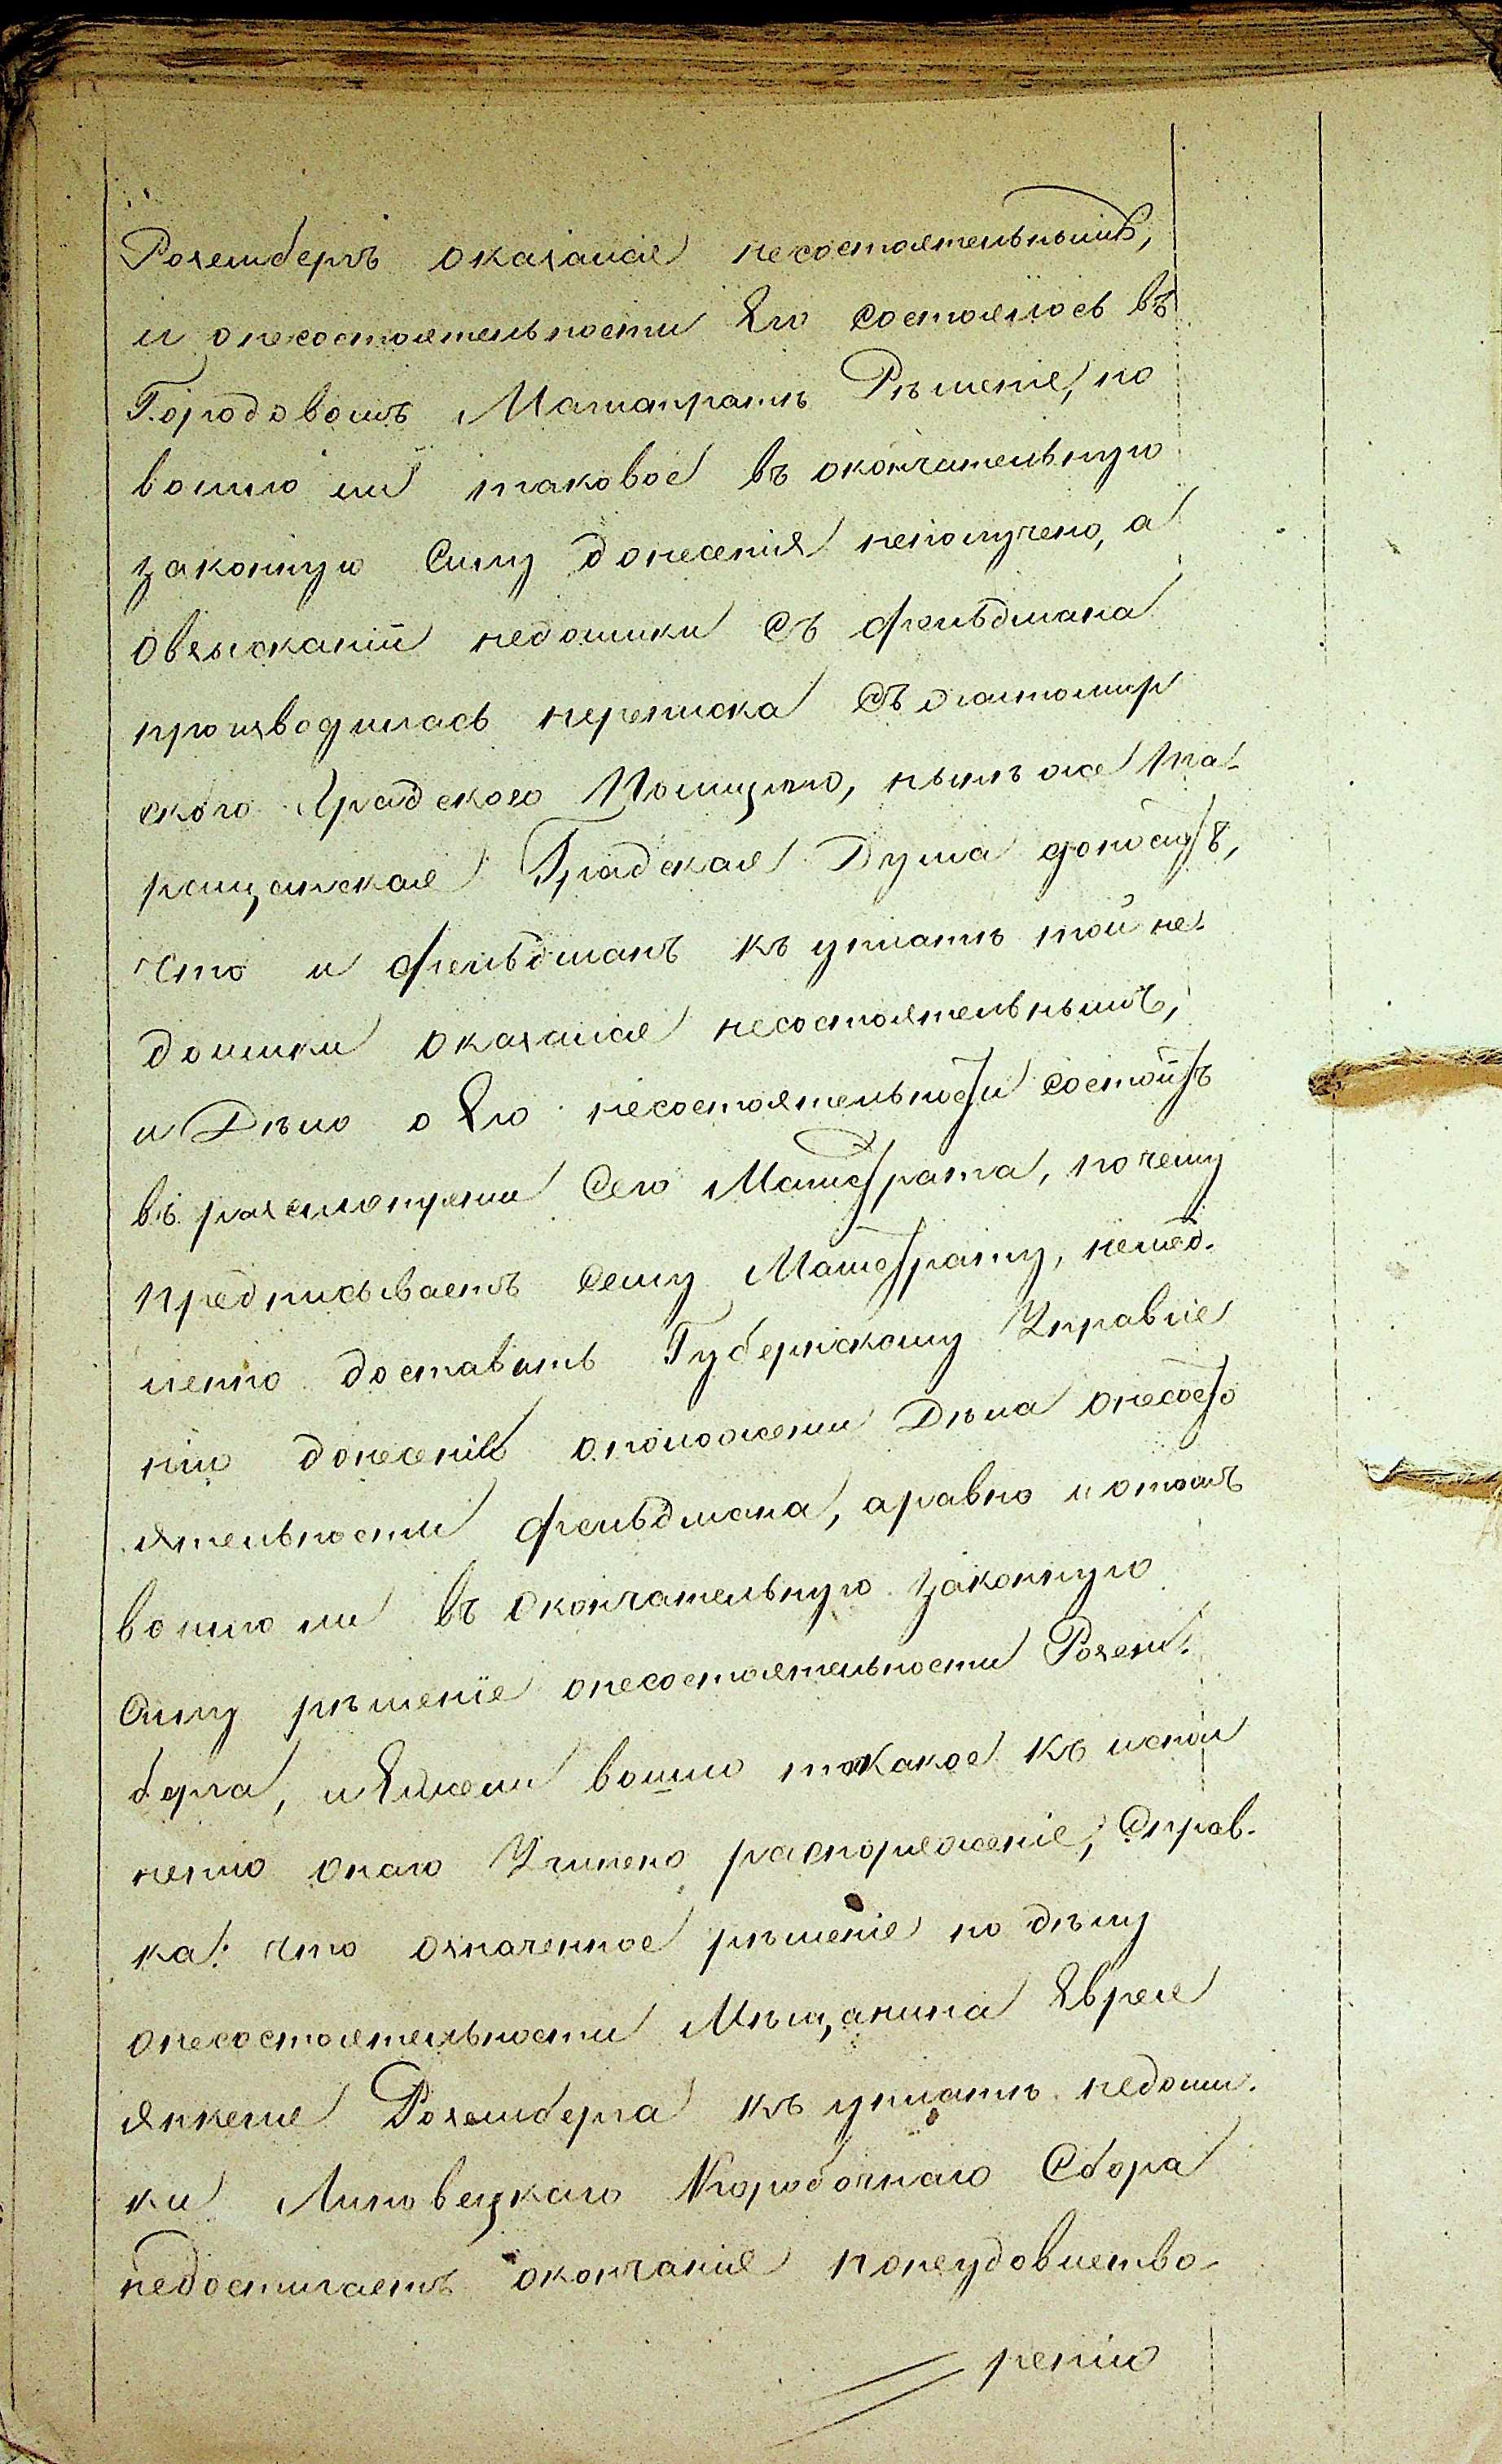 Роземберъ оказался несостоятельнымъ,
и онесостоятельности Его состоялось въ
Городовомъ Магистратѣ Рѣшеніе, но
вошло ли таковое въ окончательную
законную Силу донесенія неполучено, а
овзысканіи недоимки Съ Фельдмана
производилась переписка Съ Житомир
скою Градскою Полицыею, нынѣ же Та-
ращанская Градская Дума доноситъ,
что и Фельдманъ къ уплатѣ той не-
доимки оказался несостоятельнымъ,
и Дѣло о Его несостоятельности состоитъ
въ разсмотреніи Сего Магистрата, почему
предписываетъ Сему Магистрату, немед-
ленно доставить Губернскому Управле
нію донесенія оположеніи Дѣла онесосто
ятельности Фельдмана, аравно и отомъ
вошло ли въ окончательную законную
Силу рѣшеніе онесостоятельности Розем-
берга, и Ежели вошло то какое къ испол
ненію онаго Учинено распоряженіе, Справ-
ка: что означенное рѣшеніе по дѣлу
онесостоятельности Мѣщанина Еврея
Янкеля Роземберга къ уплатѣ недоим-
ки Липовецкаго Коробочнаго Сбора
недостигаетъ окончанія понеудовлетво-
ренію